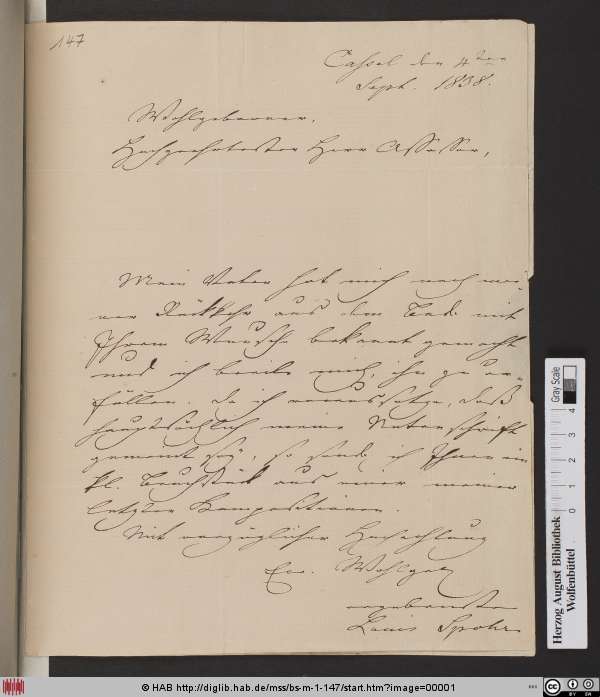 147
Cassel den 4ten
Sept. 1838.
Wohlgeborner,
Hochgeehrtester Herr Assessor,
Mein Vater hat mich nach mei-
ner Rückkehr aus dem Bade mit
Ihrem Wunsche bekannt gemacht
und ich beeile mich, ihn zu er-
füllen. Da ich voraussetze, daß
hauptsächlich meine Unterschrift
gemeint sey, so sende ich Ihnen ein
kl. Bruchstück aus einer meiner
letzten Kompositionen.
Mit vorzüglicher Hochachtung
Ew. Wohlgeb.
ergebenster
Louis Spohr.
Gray Scale
0 1 2 3 4
Herzog August Bibliothek
Wolfenbüttel
© HAB http://diglib.hab.de/mss/bs-m-1-147/start.htm?image=00001
cc BY SA